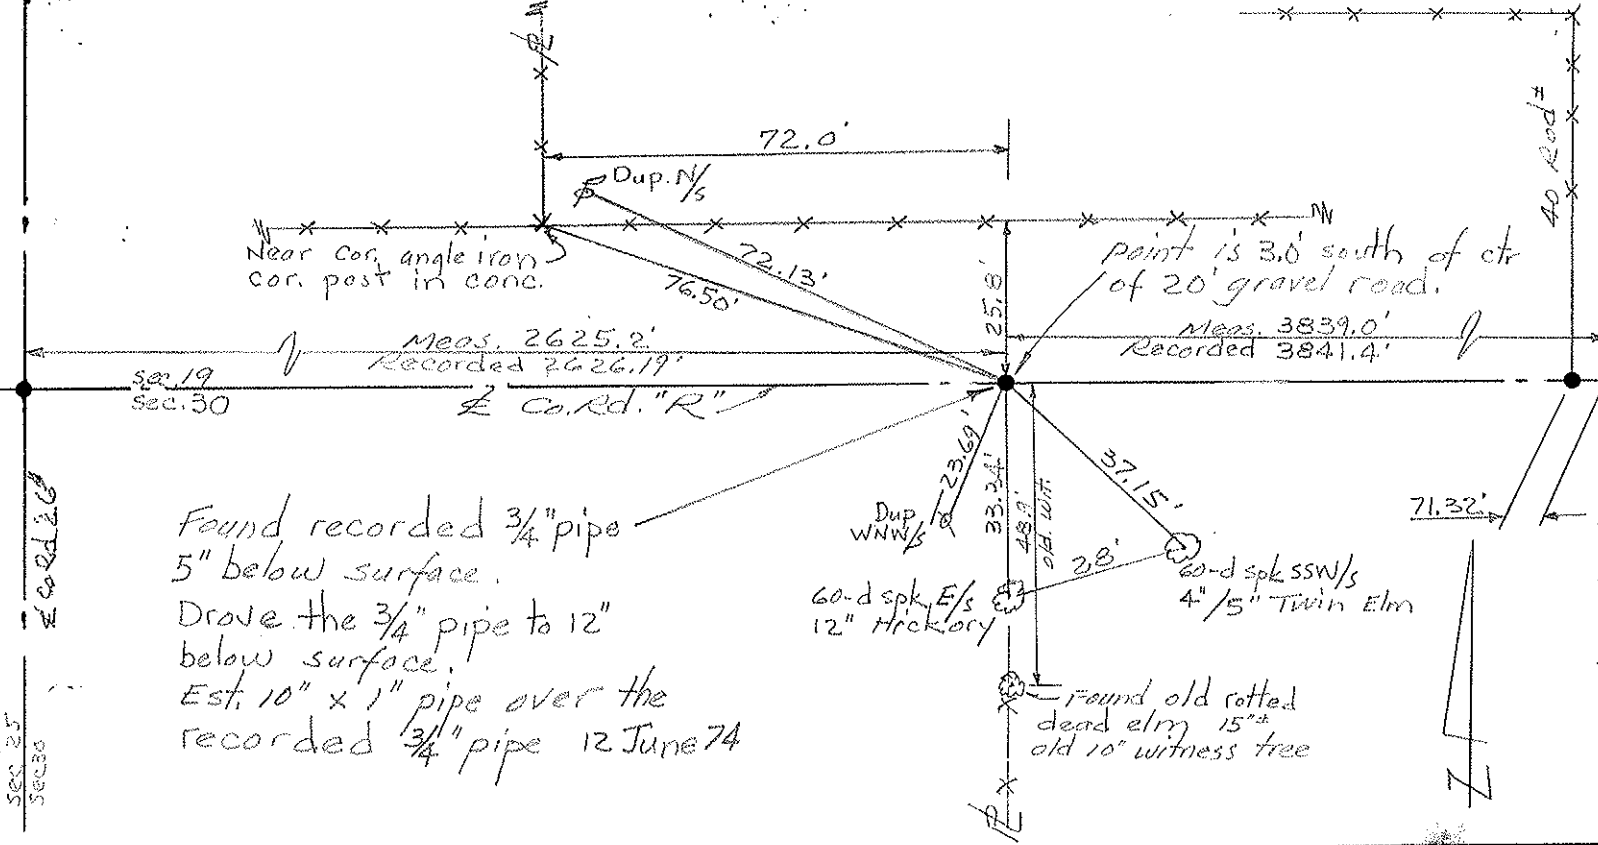 72.0'
Dup. N/s
40 Rod±
Near Cor. angle iron
cor. post in conc.
72.13'
76.50'
25.8'
point is 3.0' south of ctr
of 20' gravel road.
Meas. 2625.2'
Recorded 2626.19'
Meas. 3839.0'
Recorded 3841.4'
Sec. 19
Sec. 30
℄ Co. Rd. "R"
℄ Co Rd 26
Sec. 25
Sec 30
Found recorded 3/4" pipe
5" below surface.
Drove the 3/4" pipe to 12"
below surface.
Est. 10" x 1" pipe over the
recorded 3/4" pipe 12 June 74
23.69'
Dup
WNW/s
33.34'
48.9'
old wit.
37.15'
2.8'
60-d spk SSW/s
4"/5" Twin Elm
60-d spk E/s
12" Hickory
Found old rotted
dead elm 15"±
old 10" witness tree
71.32'